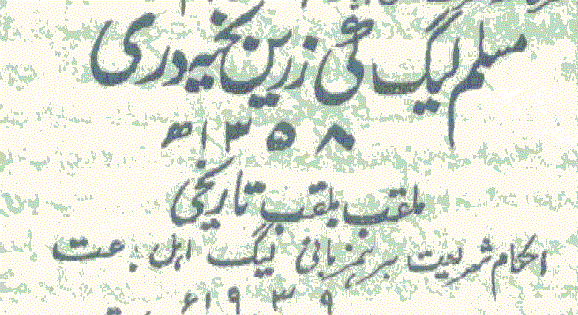 مسلم لیگ کی زریں بخیہ دری
۱۳۵۸ھ
ملقب بلقب تاریخی
احکام شریعت بر ہمزبانی لیگ اہل بدعت
۱۹۳۹ء